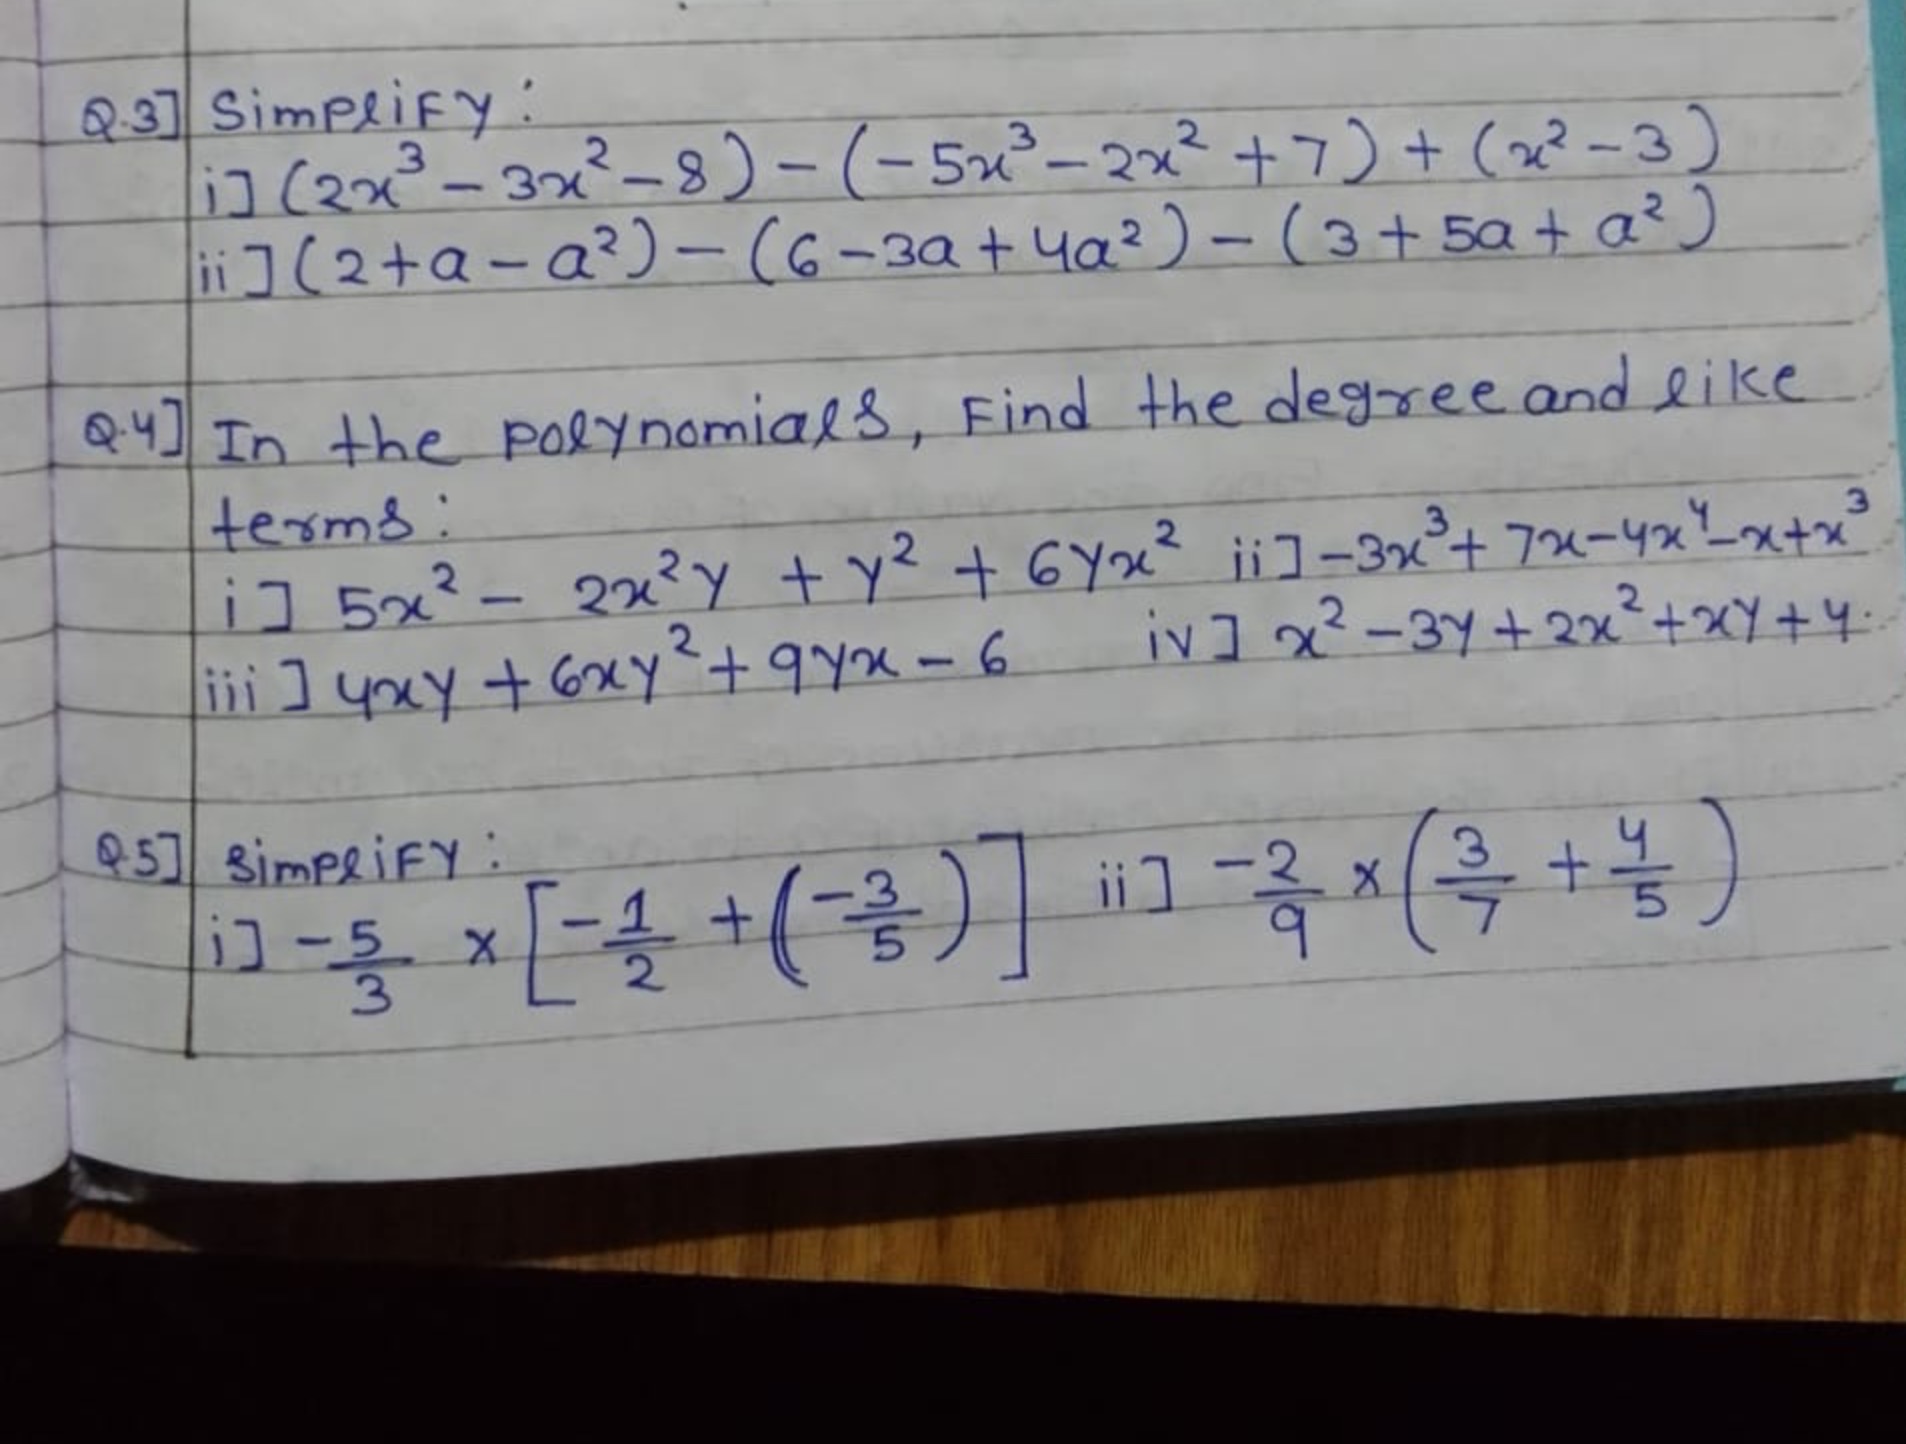 Q.3] Simplify :
i] (2x³ - 3x² - 8) - (-5x³ - 2x² + 7) + (x² - 3)
ii] (2 + a - a²) - (6 - 3a + 4a²) - (3 + 5a + a²)
Q.4] In the polynomials, Find the degree and like
terms :
i] 5x² - 2x²y + y² + 6yx² ii] -3x³ + 7x - 4x⁴ - x + x³
iii] 4xy + 6xy² + 9yx - 6 iv] x² - 3y + 2x² + xy + 4.
Q.5] simplify :
i] -5/3 × [-1/2 + (-3/5)] ii] -2/9 × (3/7 + 4/5)